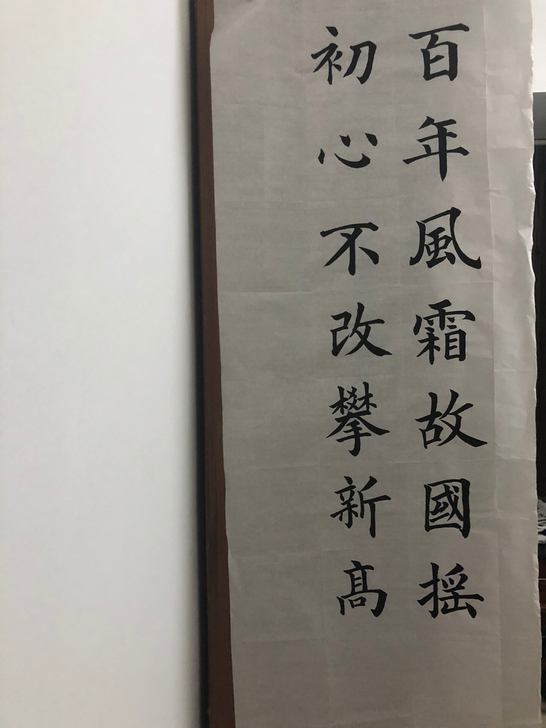 百年風霜故國揺
初心不改攀新髙